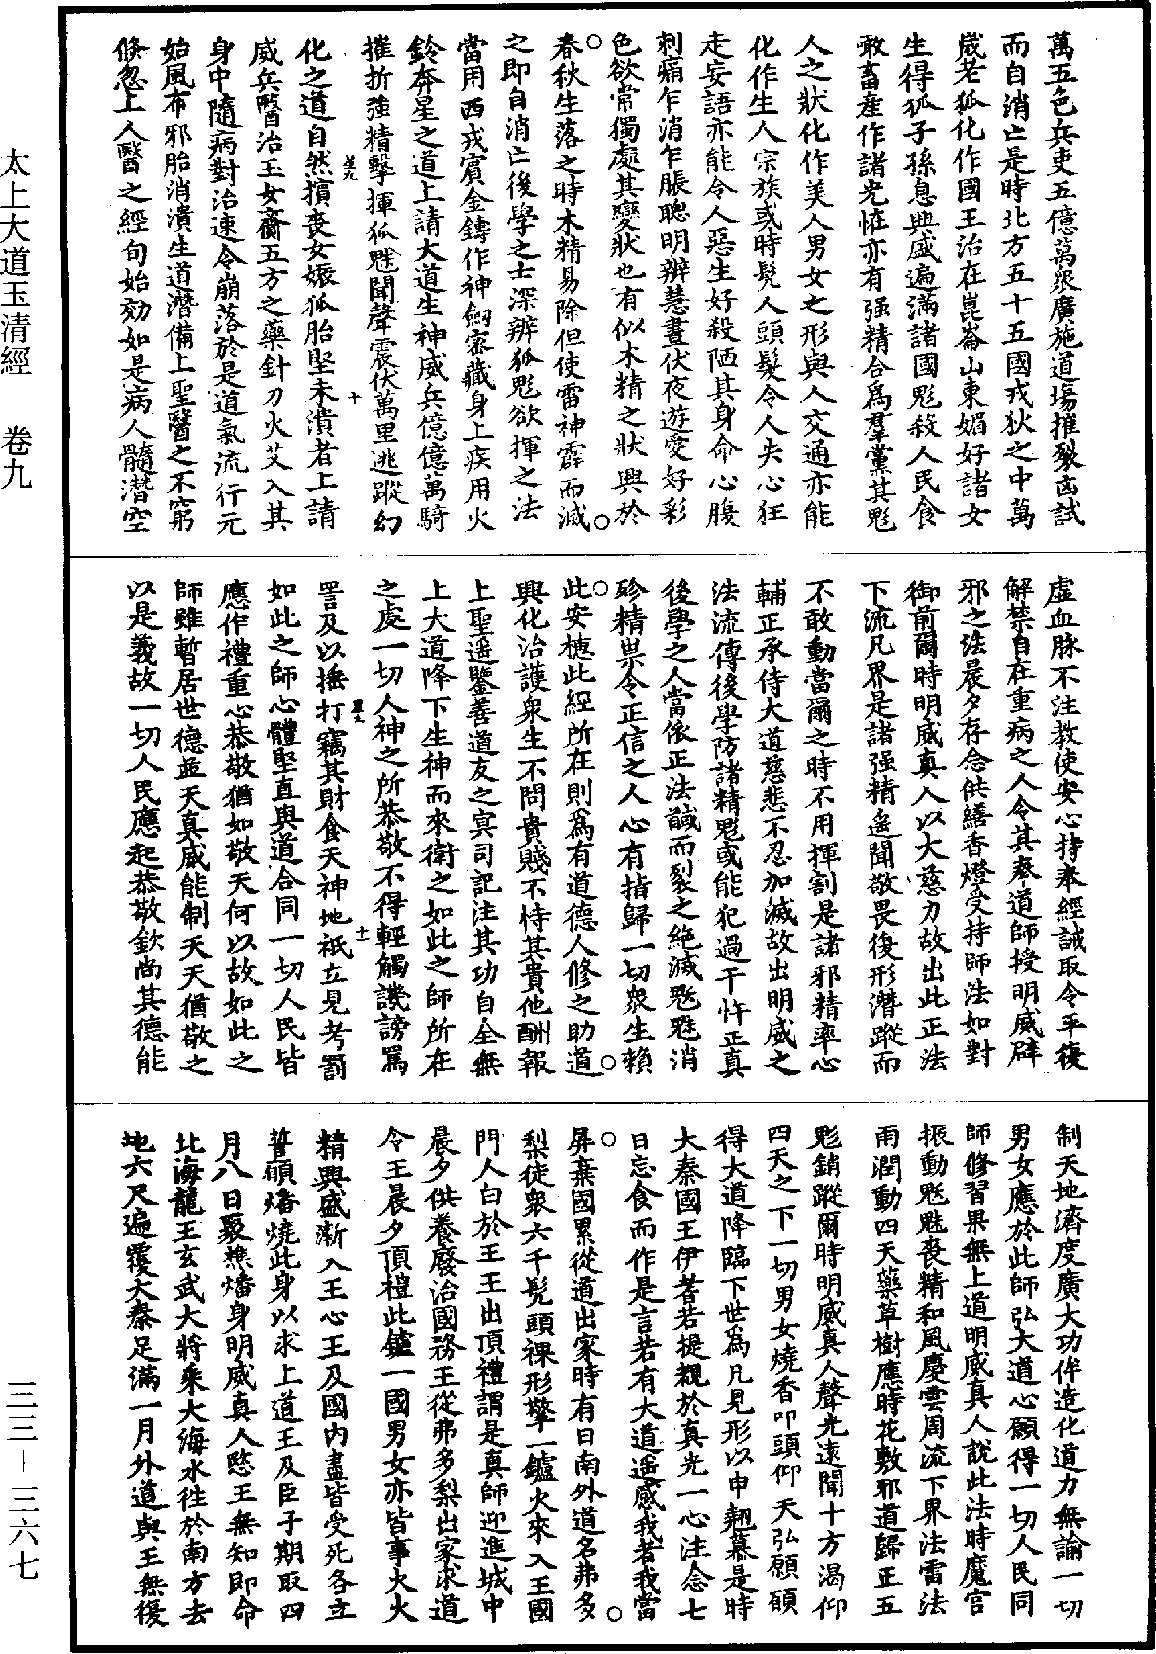 萬五色兵吏五億萬眾廣施道場摧裂鹵試
而自消亡是時北方五十五國戎狄之中萬
歲老狐化作國王治在崑崙山東媚好諸女
生得狐子孫息興盛遍滿諸國鬽殺人民食
敢畜產作諸光恠亦有强精合為羣黨其鬽
人之狀化作美人男女之形與人交通亦能
化作生人宗族或時髡人頭髮令人失心狂
走妄語亦能令人惡生好殺陋其身命心腹
刺痛乍消乍脹聰明辨慧晝伏夜遊愛好彩
色欲常獨處其變狀也有似木精之狀興於
春秋生落之時木精易除但使雷神霹而滅
之即自消亡後學之士深辨狐鬽欲揮之法
當用西戎賓金鑄作神劒密藏身上疾用火
鈴奔星之道上請大道生神威兵億億萬騎
摧折強精擊揮狐魅聞聲震伏萬里逃蹤幻
化之道自然擯喪女娠狐胎堅未潰者上請
威兵醫治玉女齎五方之藥針刀火艾入其
身中隨病對治速令崩落於是道氣流行元
始風布邪胎消潰生道潛備上聖醫之不窮
倐忽上人醫之經旬始効如是病人髓潛空
虛血脉不注教使安心持奉經誡取令平復
解禁自在重病之人令其奉道師授明威辟
邪之法晨夕存念供繕香燈受持師法如對
御前爾時明威真人以大慈力故出此正法
下流凡界是諸强精遙聞敬畏復形潛蹤而
不敢動當爾之時不用揮割是諸邪精率心
輔正承侍大道慈悲不忍加滅故出明威之
法流傳後學防諸精鬽或能犯過干忤正真
後學之人當依正法誡而裂之絕滅魃魅消
殄精祟令正信之人心有指歸一切眾生賴
此安棲此經所在則為有道德人修之助道
興化治護衆生不問貴賤不恃其貴他酬報
上聖遥鑒善道友之冥司記注其功自全無
上大道降下生神而來衛之如此之師所在
之處一切人神之所恭敬不得輕觸譏謗罵
詈及以捶打竊其財食天神地祇立見考罰
如此之師心體堅直與道合同一切人民皆
應作禮重心恭敬猶如敬天何以故如此之
師雖暫居世德並天真威能制天天猶敬之
以是義故一切人民應起恭敬欽尚其德能
制天地濟度廣大功侔造化道力無論一切
男女應於此師弘大道心願得一切人民同
師修習果無上道明威真人說此法時魔官
振動魃魅喪精和風慶雲周流下界法雷法
雨潤動四天藥草樹應時花敷邪道歸正五
鬽銷蹤爾時明威真人聲光遠聞十方渴仰
四天之下一切男女燒香叩頭仰天弘願願
得大道降臨下世為凡見形以申翹慕是時
大秦國王伊耆若提覩於真光一心注念七
日忘食而作是言若有大道遥感我者我當
屏棄國累從道出家時有日南外道名弗多
梨徒衆六千髡頭裸形擎一鑪火來入王國
門人白於王王出頂禮謂是真師迎進城中
晨夕供養廢治國務王從弗多梨出家求道
令王晨夕頂禮此鑪一國男女亦皆事火火
精興盛漸入王心王及國內盡皆受死各立
誓願燔燒此身以求上道王及臣子期取四
月八日聚樵燔身明威真人愍王無知即命
北海龍王玄武大將乘大海水往於南方去
地六尺遍覆大秦足滿一月外道與王無復
太上大道玉清經　卷九
三三－三六七